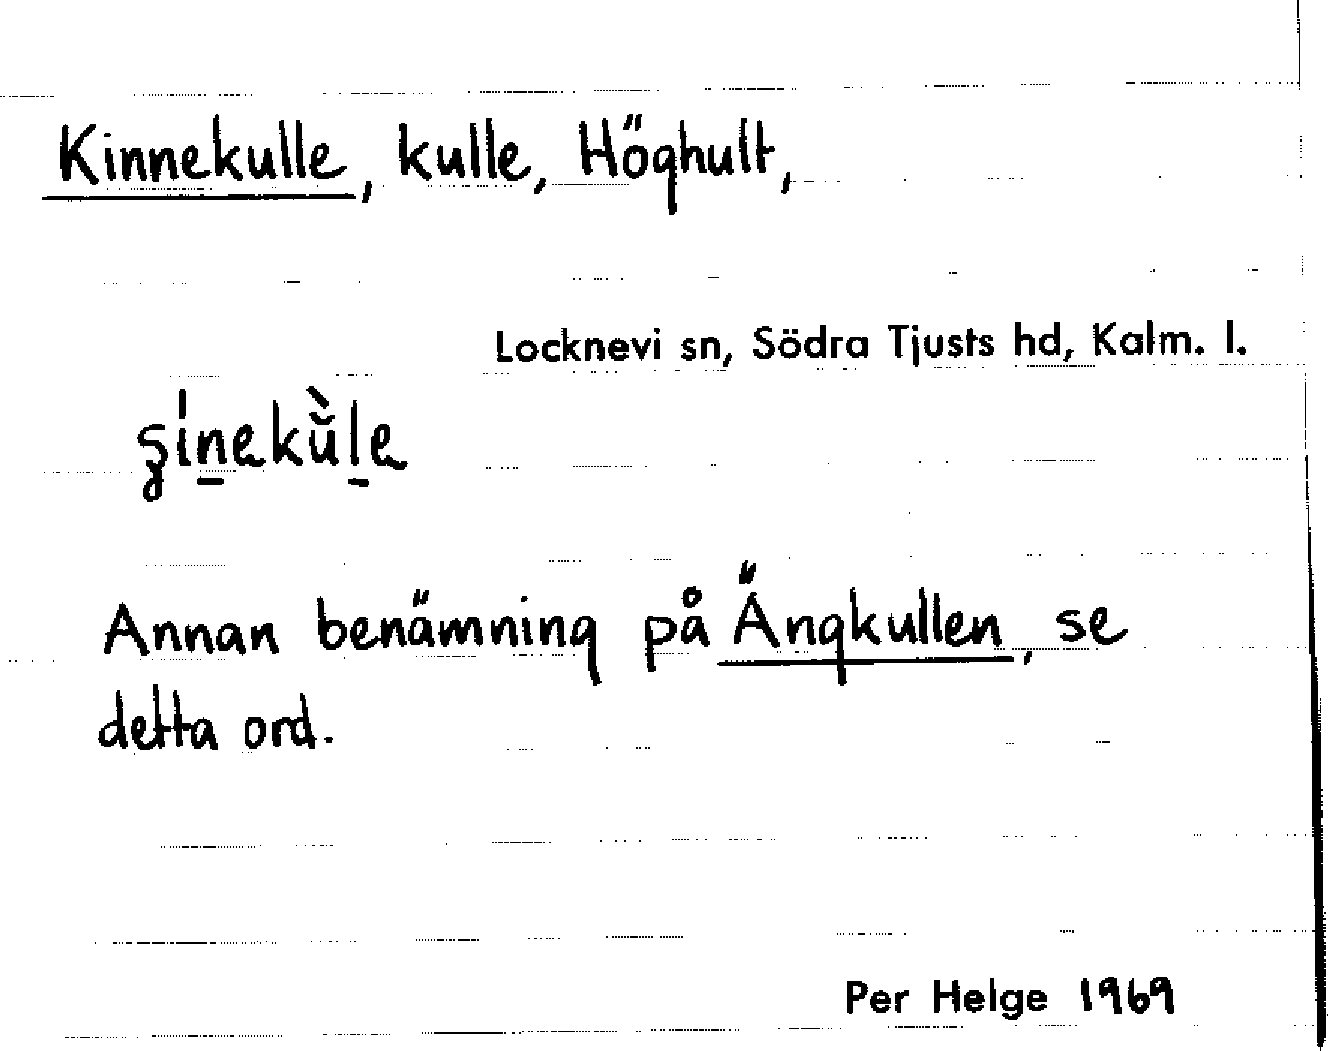 Kinnekulle, kulle, Höghult,
Locknevi sn, Södra Tjusts hd, Kalm. l.
Annan benämning på Ängkullen, se
detta ord.
Per Helge 1969